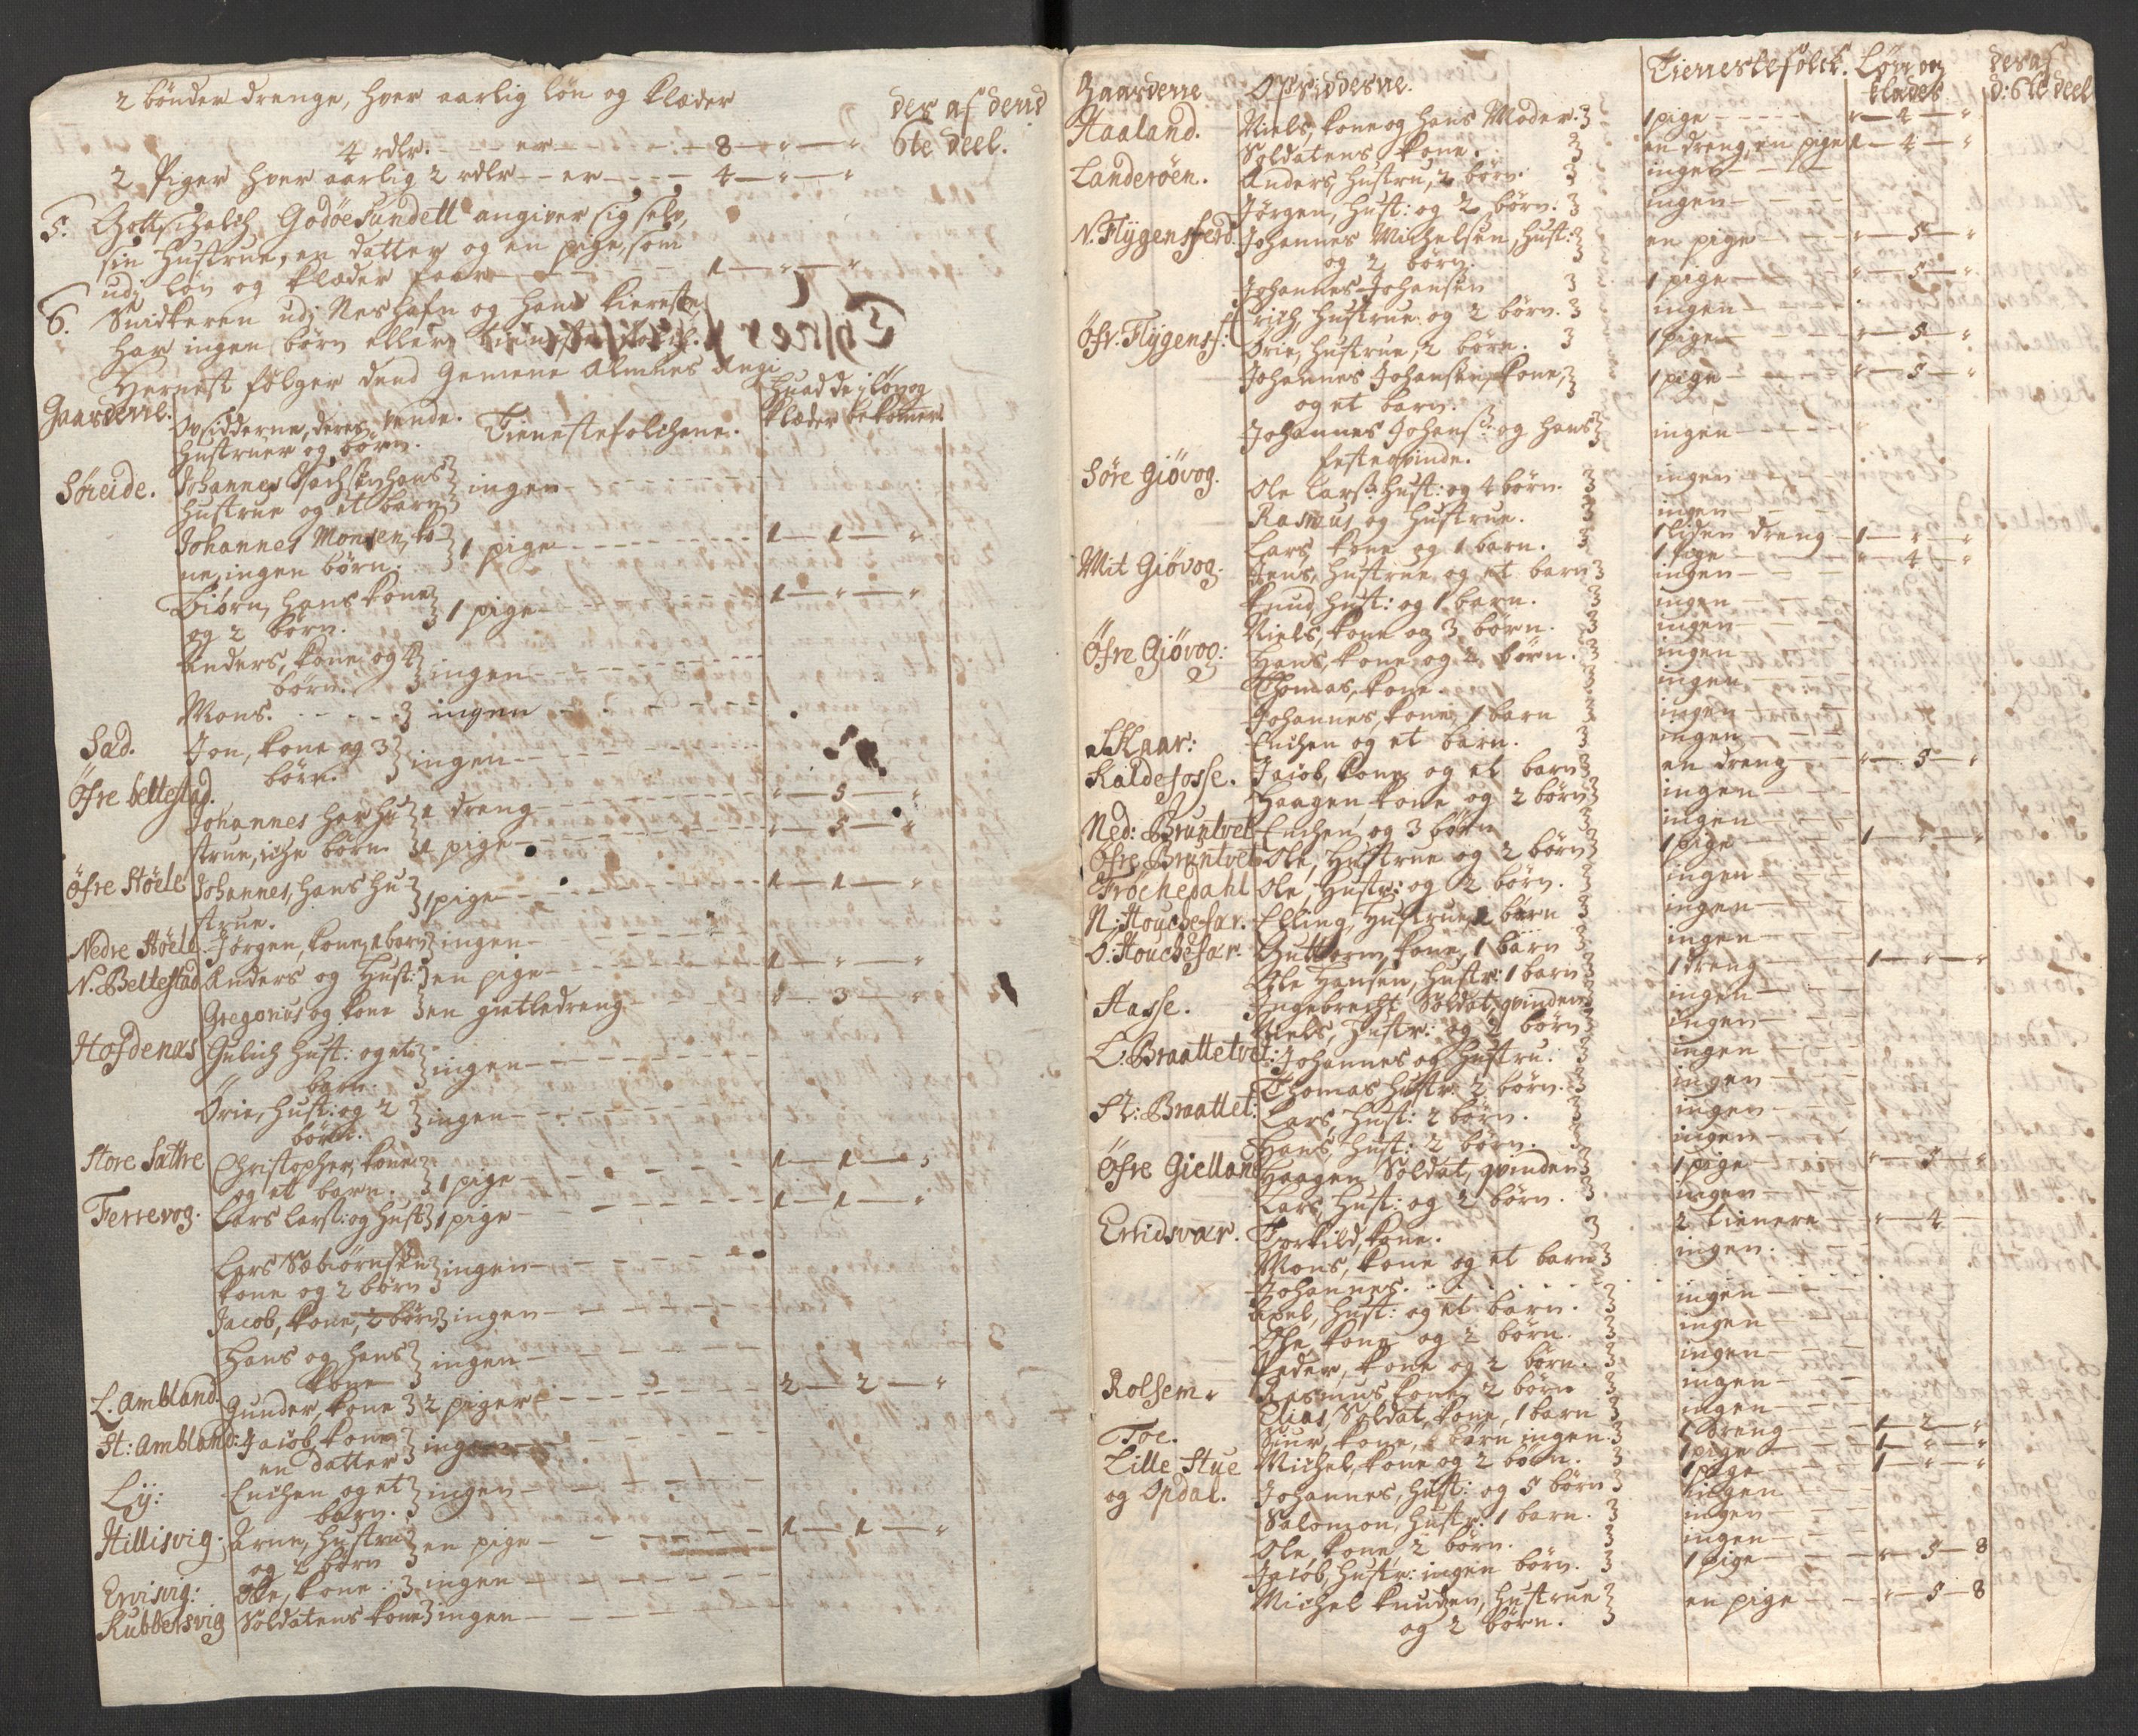 2 bønder drenge, hver aarlig løn og klæder
der af dend
4 rdlr. - - er - - - - 8 - " - "
6te deel.
2 Piger hver aarlig 2 rdlr - - er - - - 4 - " - "
5. Gottschalch Godøesundett angiver sig selv,
sin Hustrue, en datter og en pige, som
udj løn og klæder faar - - - - 1 - " - "
6. Snidkeren udj Neshafn og hans kiereste
har ingen børn eller tieneste folch.
Hernest følger dend Gemene Almues Angi
vende.
Gaarderne.
Opsidderne, deres
Hustruer og børn.
Tienestefolchene.
Huad de i løn og
klæder bekomer.
Søreide. Johannes Isachsen hans
hustrue og et barn } ingen - - -
Johannes Monsen, ko-
ne, ingen børn. } 1 pige - - - 1 - 1 - "
Biørn, hans kone
og 2 børn. } 1 pige - - - 1 - " - "
Anders, kone og 4
børn. } ingen - - -
Mons. - - - } ingen - - -
Sad. Jon, kone og 3
børn. } ingen - - -
Øfre beltestad.
Johannes har hu- } 1 dreng - - - " - 5 - "
strue, iche børn } 1 pige - - - " - 5 - "
Øfre Støele Johannes, hans hu-
strue. } 1 pige - - - 1 - 1 - "
Nedre Støele Jørgen, kone, 1 barn } ingen -
N. Beltestad Anders og Hust: } en pige - - - 1 - " - "
Gregorius og kone } en gietledreng - - - " - 3 - "
Hofdenæs Gulich Hust: og et
barn. } ingen - - -
Ørie, hust: og 2
børn. } ingen - - -
Store Sæthre Christopher, kone
og et barn. } 1 pige - - - 1 - 1 - "
Ferrevog. Lars Lars: og Hust } 1 pige - - - 1 - 1 - "
Lars Sæbiørnsen
kone og 2 børn } ingen - - -
Jacob, kone, 2 børn } ingen - - -
Hans og hans
kone } ingen - - -
L. Ambland. Gunder, kone } 2 piger - - - 2 - 2 - "
St: Ambland: Jacob, kone
en datter } ingen
Ly: Enchen og et
barn. } ingen - - -
Hillisvig. Arne, Hustru
og 2 børn } en pige - - - 1 - 1 - "
Ervisvig: Ole, kone. } ingen - - -
Kubbersvig Soldatens kone } ingen - - -
Gaarderne Opsidderne. Tienestefolck. Løn og
klæder der af
d: 6te deel
Haaland. Niels, kone og hans Moder. } 1 pige - - - " - 4 - "
Soldatens kone. } en dreng, en pige 1 - 4 - "
Landerøen. Anders, Hustru, 2 børn. } ingen - - -
Jørgen, Hust: og 2 børn. } ingen - - -
N. Flygensferd. Johannes Michelsen, Hust:
og 2 børn. } en pige - - - " - 5 - "
Johannes Johansen } 1 pige - - - " - 5 - "
Erich, Hustrue og 2 børn. } ingen - - -
Øfr. Flygensf: Ørie, Hustrue, 2 børn. } 1 pige - - - " - 5 - "
Johannes Johansen, kone,
og et barn. } 1 pige - - - " - 5 - "
Johannes Johans: og hans
festeqvinde. } ingen - - -
Søre Giövog. Ole Lars: hust: og 4 børn. } ingen - - -
Rasmus og Hustrue. } ingen - - -
Lars kone og 1 barn. } 1 liden dreng - 1 - " - "
Mit Giövog. Jens, Hustrue og et barn } 1 pige - - - " - 4 - "
Knud, Hust: og 1 barn. } ingen - - -
Niels, kone og 3 børn. } ingen - - -
Öfre Giövog: Hans, kone og 2 børn. } ingen - - -
Thomas, kone. } ingen - - -
Johannes, kone, 1 barn } ingen - - -
Skaar: Enchen og et barn. } ingen - - -
Kaldefosse. Jacob, kone og et barn } en dreng - - - " - 5 - "
Haagen kone og 2 børn } ingen - - -
Ned: Bruntvet Enchen, og 3 børn } ingen - - -
Øfre Bruntvet Ole, Hustrue og 2 børn } 1 pige - - - 1 - " - "
Frøchedahl Ole, Hustr: og 2 børn. } ingen - - -
N: Houchefær. Elling, Hustrue, 2 børn } ingen - - -
O: Houchefær. Guttorm, kone, 1 barn } ingen - - -
Ole Hansen, Hustr: 1 barn } 1 dreng - - - 1 - " - "
Aasse. Ingebrecht Soldat, qvinden } ingen - - -
Niels, Hustr: og 2 børn } ingen - - -
L. Braattetvet: Johannes og Hustru. } ingen - - -
Thomas Hustr: 2 børn. } ingen - - -
St: Braattet: Lars, Hust: 2 børn. } ingen - - -
Hans, Hust: 2 børn. } ingen - - -
Øfre Gielland Haagen Soldat, qvinden } 1 pige - - - " - 5 - "
Lars, Hust: og 2 børn. } ingen - - -
Enidsvær. Torkild, kone. } 2 tienere - - " - 4 -
Mons, kone og et barn } ingen. - -
Johannes. - - - -
Abel, Hust: og et barn. } ingen - - -
Ole, kone og 2 børn. } ingen - - -
Peder, kone og 2 børn. } ingen - - -
Rolsem. Rasmus kone, 2 børn } ingen - - -
Elias, Soldat, kone, 1 barn } ingen - - -
Toe. Siur, kone, børn ingen. } 1 dreng - - 1 - 2 - "
Lille Stue Michel, kone og 2 børn. } 1 pige - - 1 - " - "
og Opdal. Johannes, Hust: og 5 børn } 1 pige - - 1 - " - "
Salomon, Hustr: 1 barn. } ingen - - -
Ole kone 2 børn. } ingen - - -
Jacob, Hustr: ingen børn. } 1 pige - - - " - 5 - 8
Michel Knudsen, Hustrue
og 2 børn. } en pige - - - " - 5 - 8